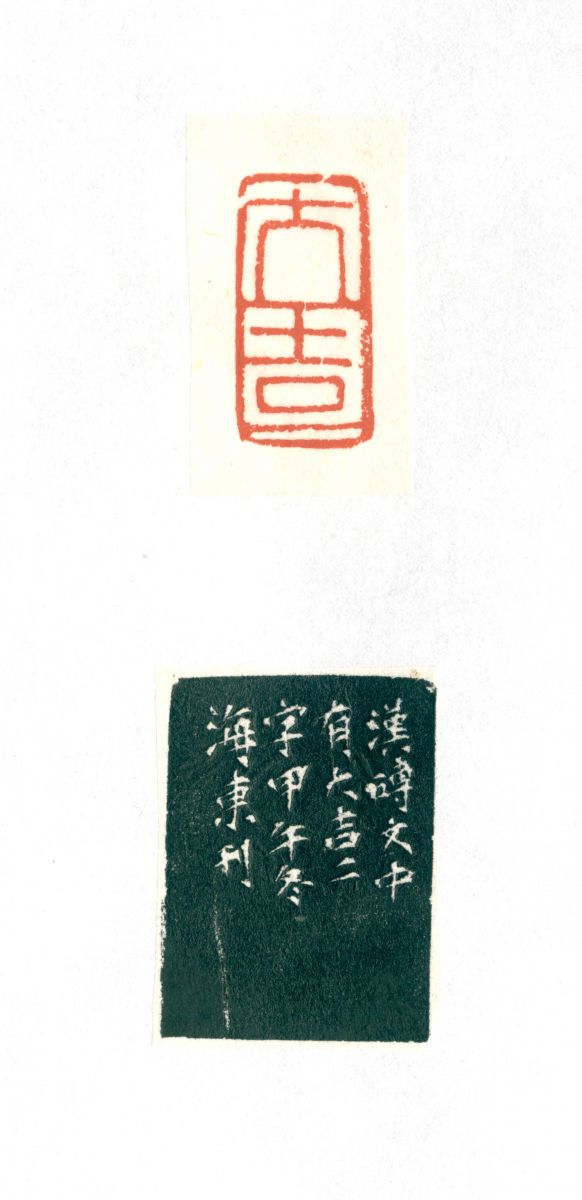 大吉
漢磚文中
有大吉二
字甲午冬
海東刊